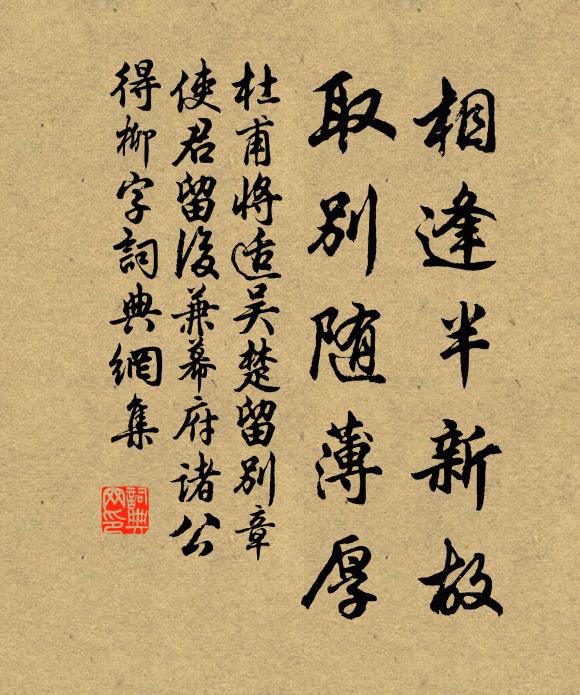 相逢半新故
取别随薄厚
杜甫將适吴楚留别章
使君留後兼幕府諸公
得柳字詞典網集
詞典
网印